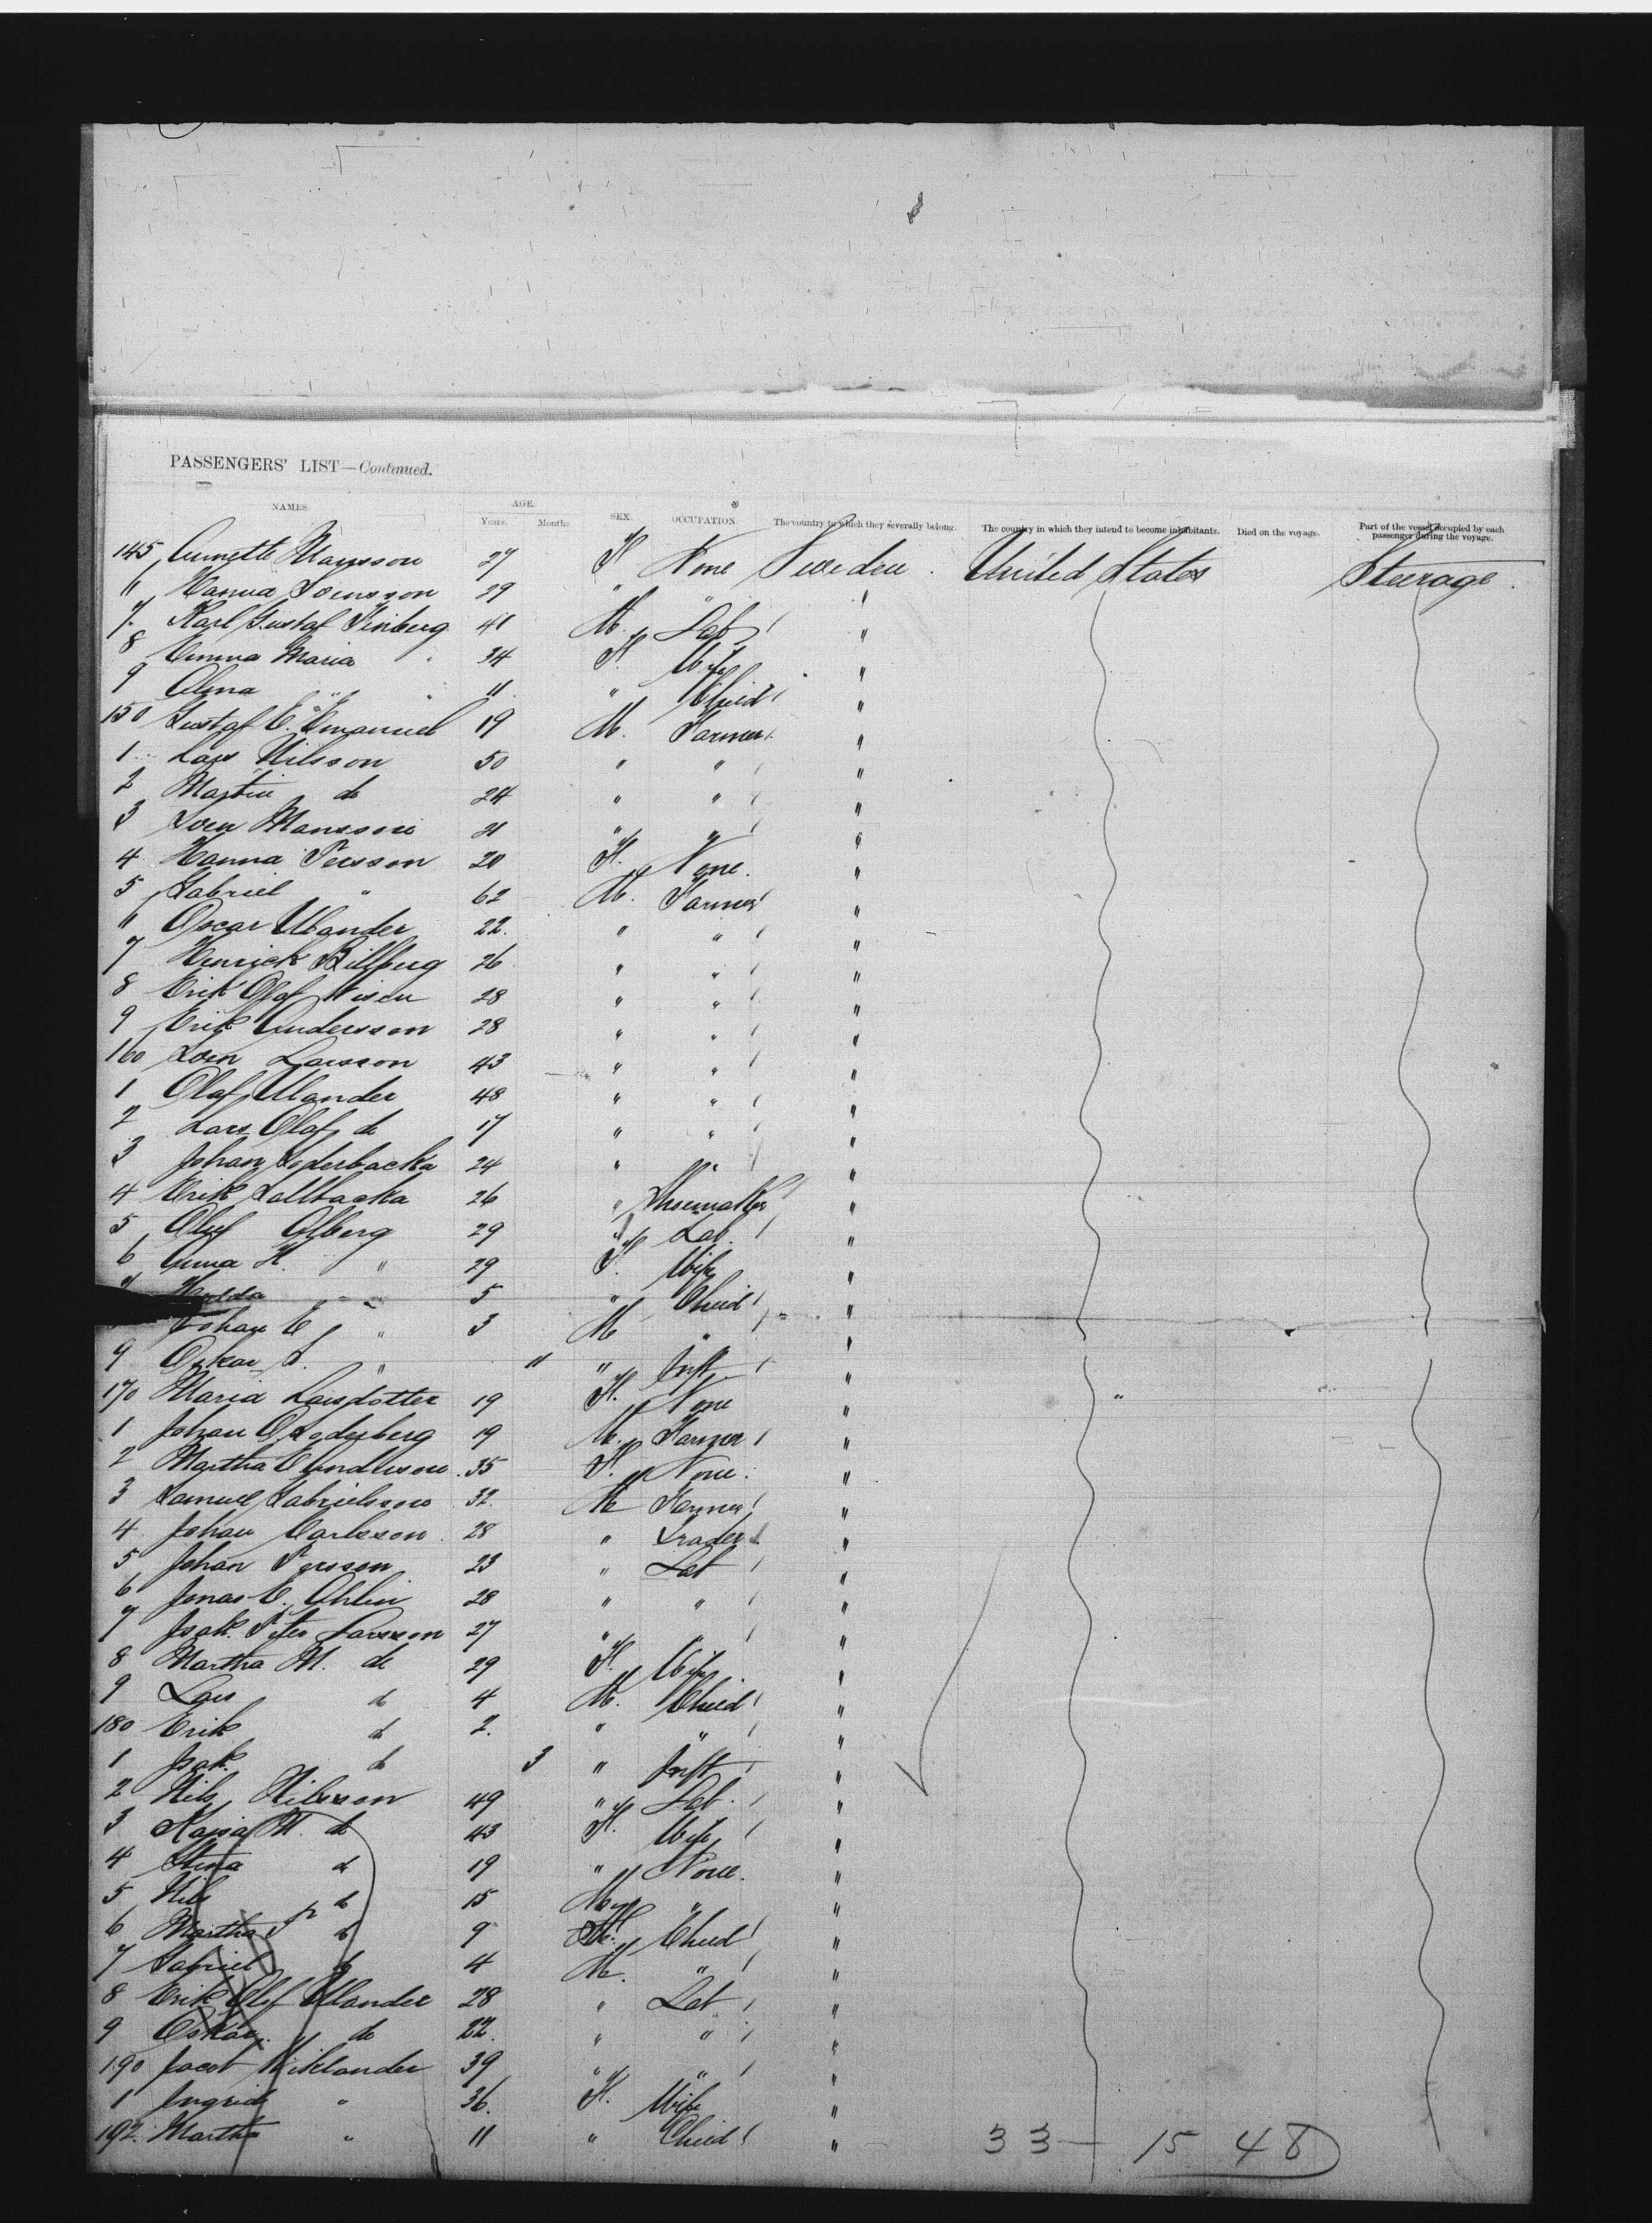 PASSENGERS' LIST—Continued.
NAMES. AGE. SEX. OCCUPATION. The country to which they severally belong. The country in which they intend to become inhabitants. Died on the voyage. Part of the vessel occupied by each passenger during the voyage.
Years. Months.
145 Annette Mansson 27 F None Sweden. United States Steerage.
" Hanna Svensson 29 " " "
7. Karl Gustaf Tinberg 41 M. Lab "
8 Emma Maria " 34 F. Wife "
9 Alma " " 11 " Child "
150 Gustaf E. Emanuel 19 M. Farmer "
1 Lars Nilsson 50 " " "
2 Martin do 24 " " "
3 Sven Mansson 21 " " "
4 Hanna Persson 20 F. None. "
5 Gabriel " 62 M. Farmer "
" Oscar Ulander 22. " " "
7 Henrick Billberg 26 " " "
8 Erik Olof Wisen 28 " " "
9 Erik Andersson 28 " " "
160 Sven Larsson 43 " " "
1 Olaf Ulander 48 " " "
2 Lars Olaf do 17 " " "
3 Johan Soderbacka 24 " " "
4 Erik Sallbacka 26 " Shoemaker "
5 Oluf Alberg 29 " Lab. "
6 Anna H. " 29 F. Wife "
7 Hulda " 5 " Child "
Johan E " 3 M " "
9 Oskar S. " 11 " Inft "
170 Maria Larsdotter 19 F. None "
1 Johan O Soderberg 19 M. Farmer "
2 Martha E Andersson 35 F. None. "
3 Samuel Gabrielsson 32. M Farmer "
4 Johan Carlsson 28 " Trader "
5 Johan Persson 23 " Lab "
6 Jonas E. Ohlin 28 " " "
7 Isak Peter Larsson 27 " " "
8 Martha M. do 29 F. Wife "
9 Lars do 4 M. Child "
180 Erik do 2. " " "
1 Isak do 3 " Inft "
2 Nils Nilsson 49 " Lab. "
3 Kajsa M. do 43 F. Wife "
4 Stina do 19 " None. "
5 Nils do 15 M " "
6 Martha P do 9 F. Child "
7 Gabriel do 4 M. " "
8 Erik Olof Ulander 28 " Lab "
9 Oskar do 22. " " "
190 Jacob Wiklander 39 " " "
1 Ingrid " 36. F. Wife "
192. Martha " 11 " Child "
33 — 15 48